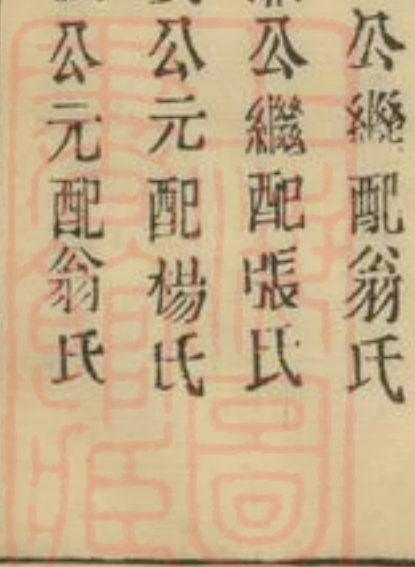 公繼配翁氏
公繼配張氏
公元配楊氏
公元配翁氏